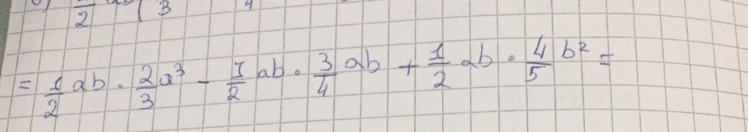 2 3 4
= 1/2 ab · 2/3 a³ - 1/2 ab · 3/4 ab + 1/2 ab · 4/5 b² =